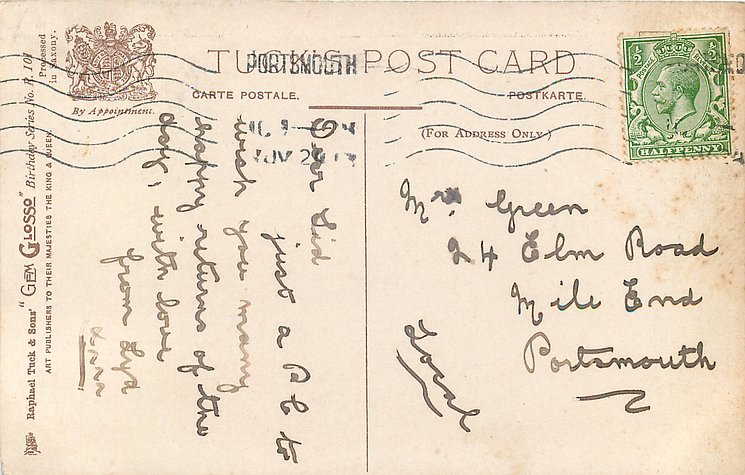 TUCK'S POST CARD
CARTE POSTALE.
POSTKARTE.
(FOR ADDRESS ONLY.)
By Appointment.
Processed
in Saxony.
Raphael Tuck & Sons' "GEM GLOSSO" Birthday Series No. R. 101
ART PUBLISHERS TO THEIR MAJESTIES THE KING & QUEEN.
PORTSMOUTH
NOV 29
½ ½
POSTAGE
HALFPENNY
Dear Sid
just a P C to
wish you many
happy returns of the
day, with love
from Syd
Mrs Green
24 Elm Road
Mile End
Portsmouth
Local